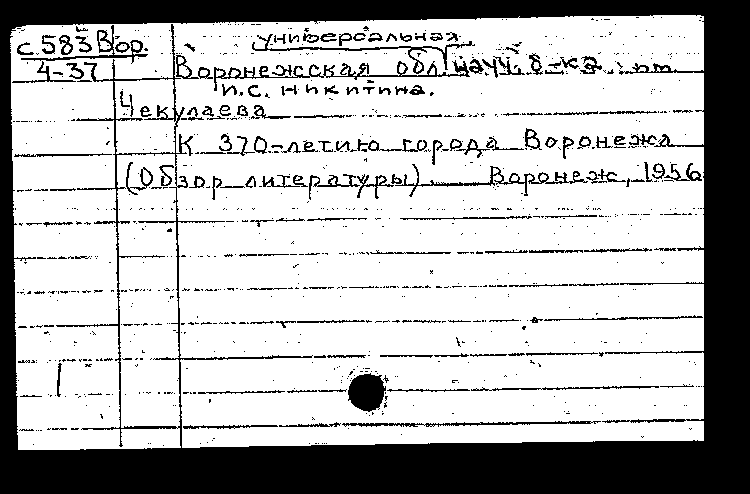 с.583 Вор.
4-37
универсальная
Воронежская обл. науч. б-ка им.
И.С. Никитина.
Чекулаева
К 370-летию города Воронежа
(Обзор литературы). Воронеж, 1956